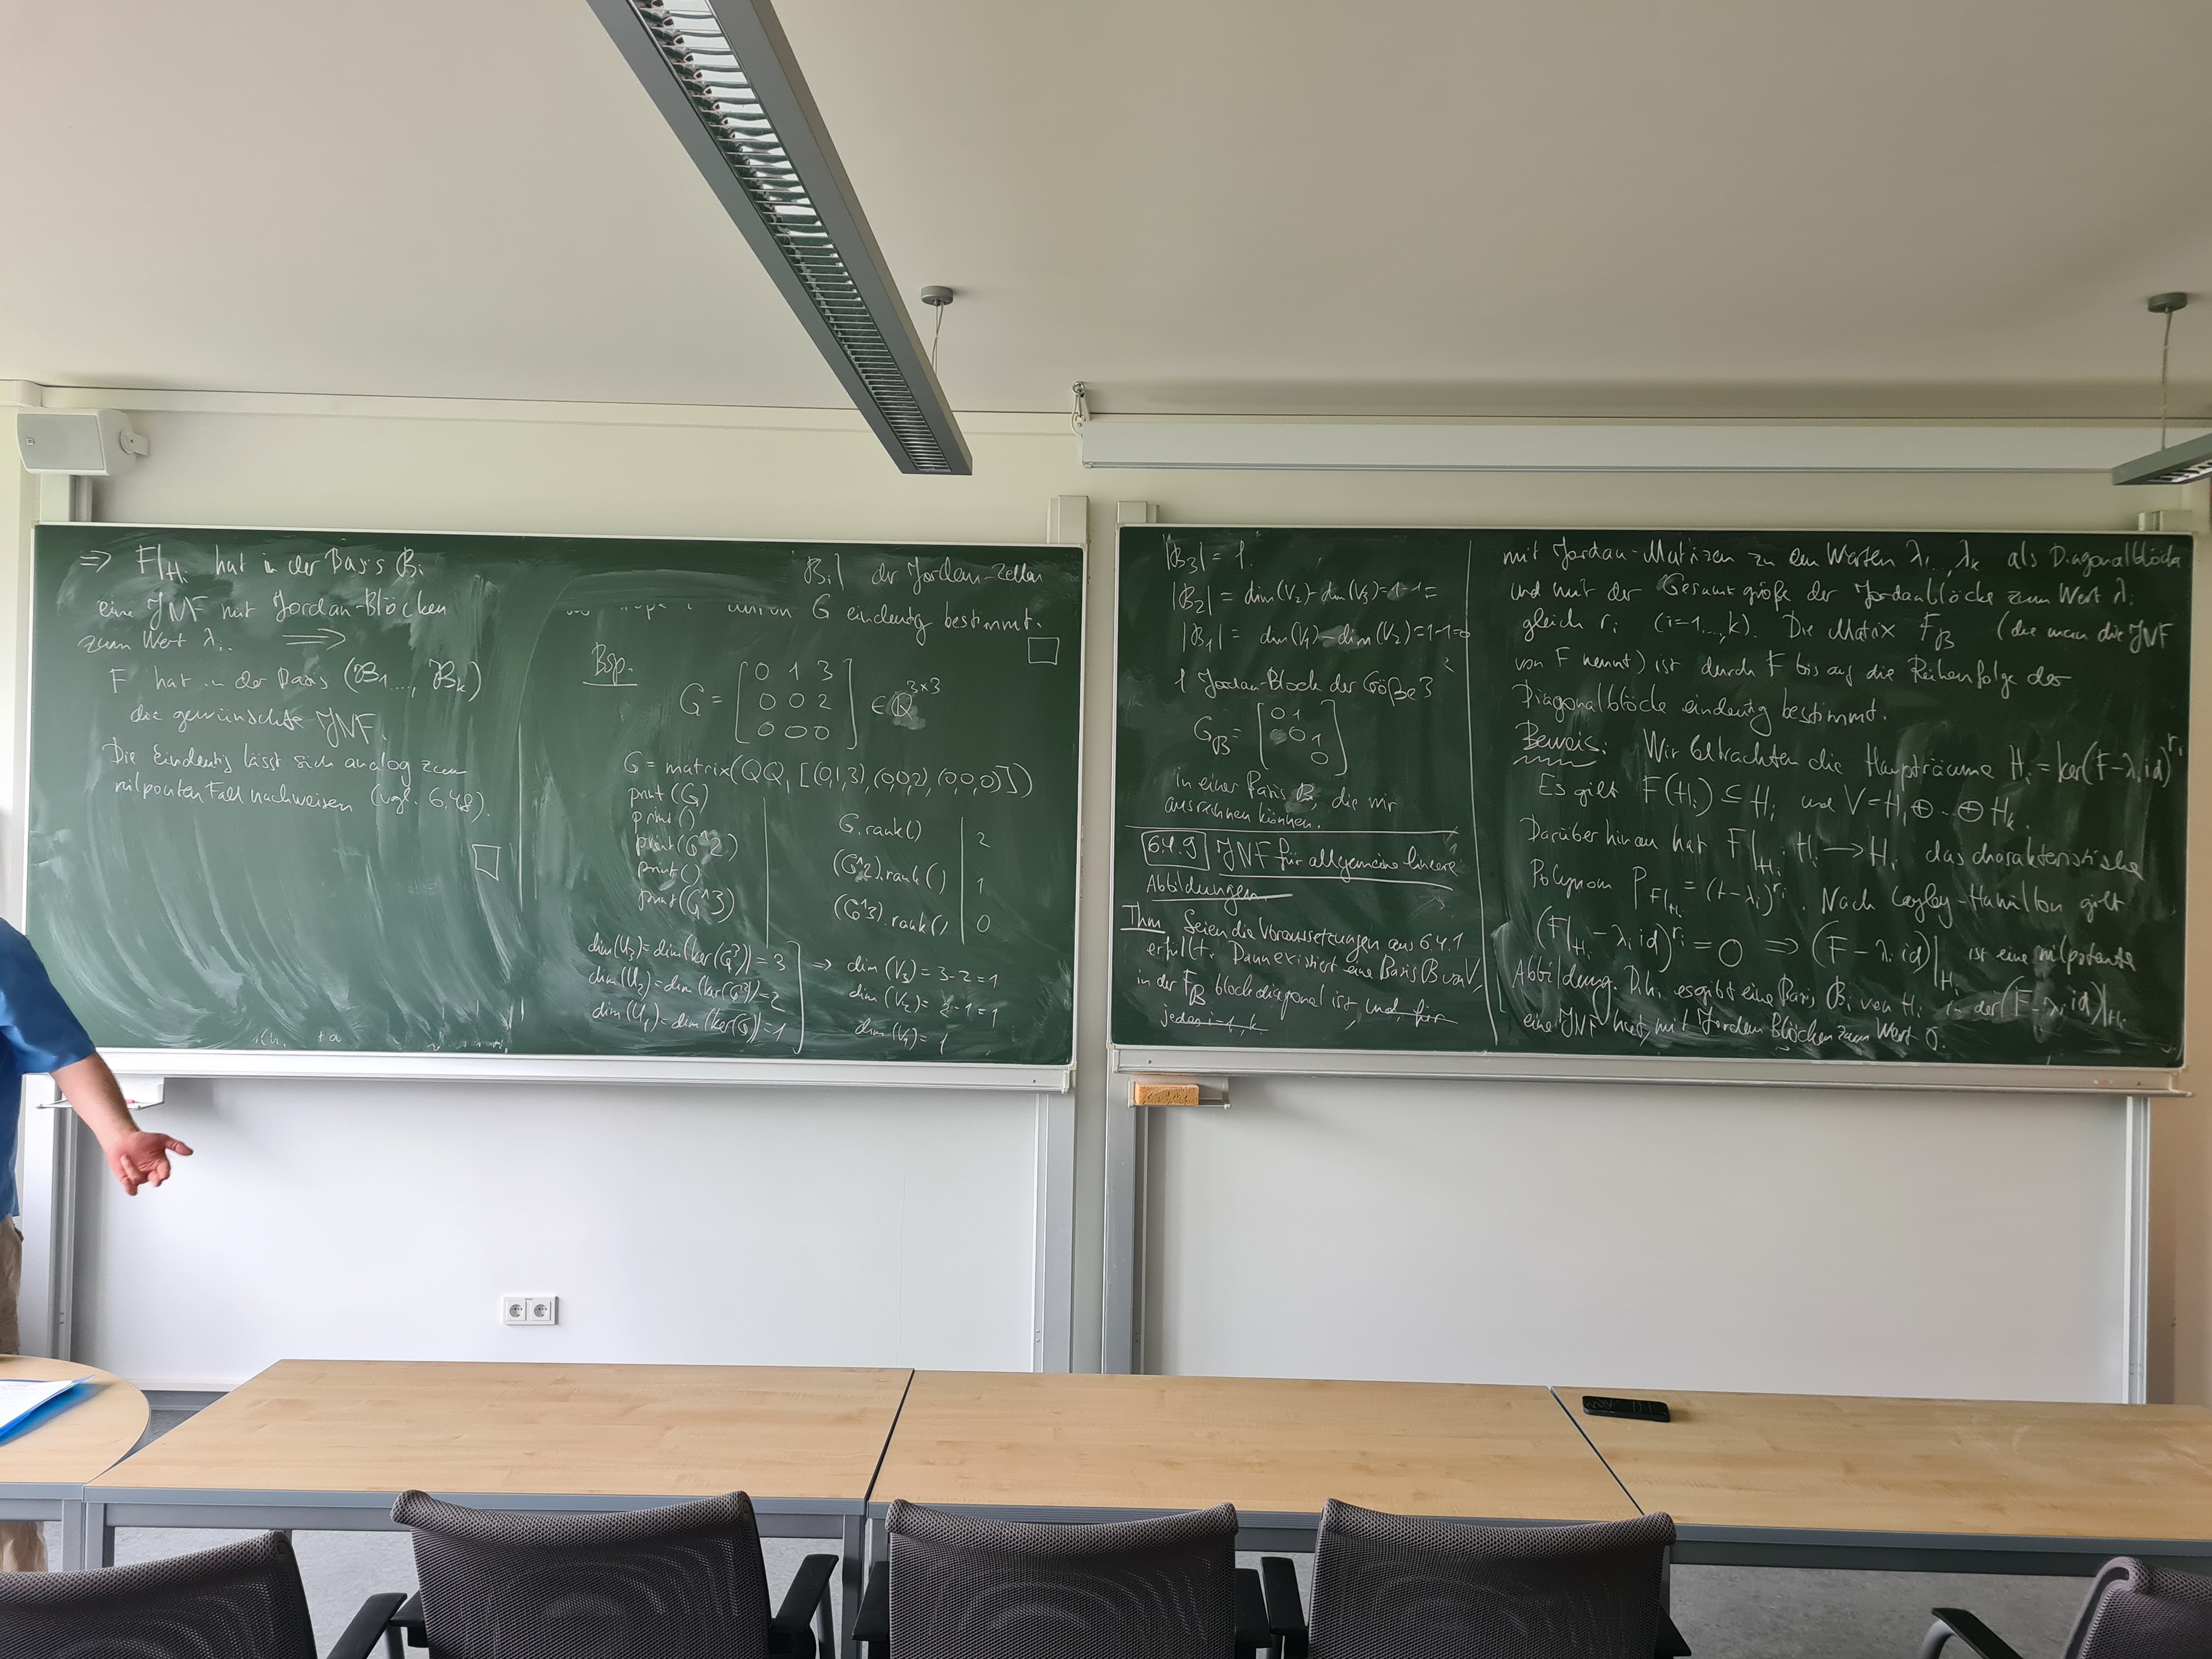 ⇒ F|_{H_i} hat in der Basis B_i
eine JNF mit Jordan-Blöcken
zum Wert λ_i. ⇒
F hat in der Basis (B_1..., B_k)
die gewünschte JNF.
Die Eindeutig lässt sich analog zum
nilpotenten Fall nachweisen (vgl. 6.4.8).
□
|B_i| der Jordan-Zellen
durch G eindeutig bestimmt.
□
Bsp.
G = [0 1 3
0 0 2
0 0 0] ∈ Q^{3×3}
G = matrix(QQ, [(0,1,3),(0,0,2),(0,0,0)])
print(G)
print()
print(G^2)
print()
print(G^3)
G.rank() | 2
(G^2).rank() | 1
(G^3).rank() | 0
dim(U_3) = dim(ker(G^3)) = 3
dim(U_2) = dim(ker(G^2)) = 2
dim(U_1) = dim(ker(G)) = 1
⇒ dim(V_3) = 3-2 = 1
dim(V_2) = 2-1 = 1
dim(V_1) = 1
|B_3| = 1.
|B_2| = dim(V_2) - dim(V_3) = 1-1 =
|B_1| = dim(V_1) - dim(V_2) = 1-1 = 0
1 Jordan-Block der Größe 3
G_B = [0 1
0 1
0]
in einer Basis B, die wir
ausrechnen können.
6.4.9 JNF für allgemeine lineare
Abbildungen
Thm Seien die Voraussetzungen aus 6.4.1
erfüllt. Dann existiert eine Basis B von V,
in der F_B blockdiagonal ist, und für
jedes i=1, k
mit Jordan-Matrizen zu den Werten λ_1..., λ_k als Diagonalblöcke
und mit der Gesamtgröße der Jordanblöcke zum Wert λ_i
gleich r_i (i=1...,k). Die Matrix F_B (die man die JNF
von F nennt) ist durch F bis auf die Reihenfolge der
Diagonalblöcke eindeutig bestimmt.
Beweis: Wir betrachten die Haupträume H_i = ker(F-λ_i id)^{r_i}
Es gilt F(H_i) ⊆ H_i und V = H_1 ⊕ ... ⊕ H_k.
Darüber hinau hat F|_{H_i} H_i → H_i das charakteristische
Polynom P_{F|_{H_i}} = (t-λ_i)^{r_i}. Nach Cayley-Hamilton gilt
(F|_{H_i} - λ_i id)^{r_i} = 0 ⇒ (F - λ_i id)|_{H_i} ist eine nilpotente
Abbildung. D.h. es gibt eine Basis B_i von H_i in der (F-λ_i id)|_{H_i}
eine JNF hat, mit Jordan Blöcken zum Wert 0.